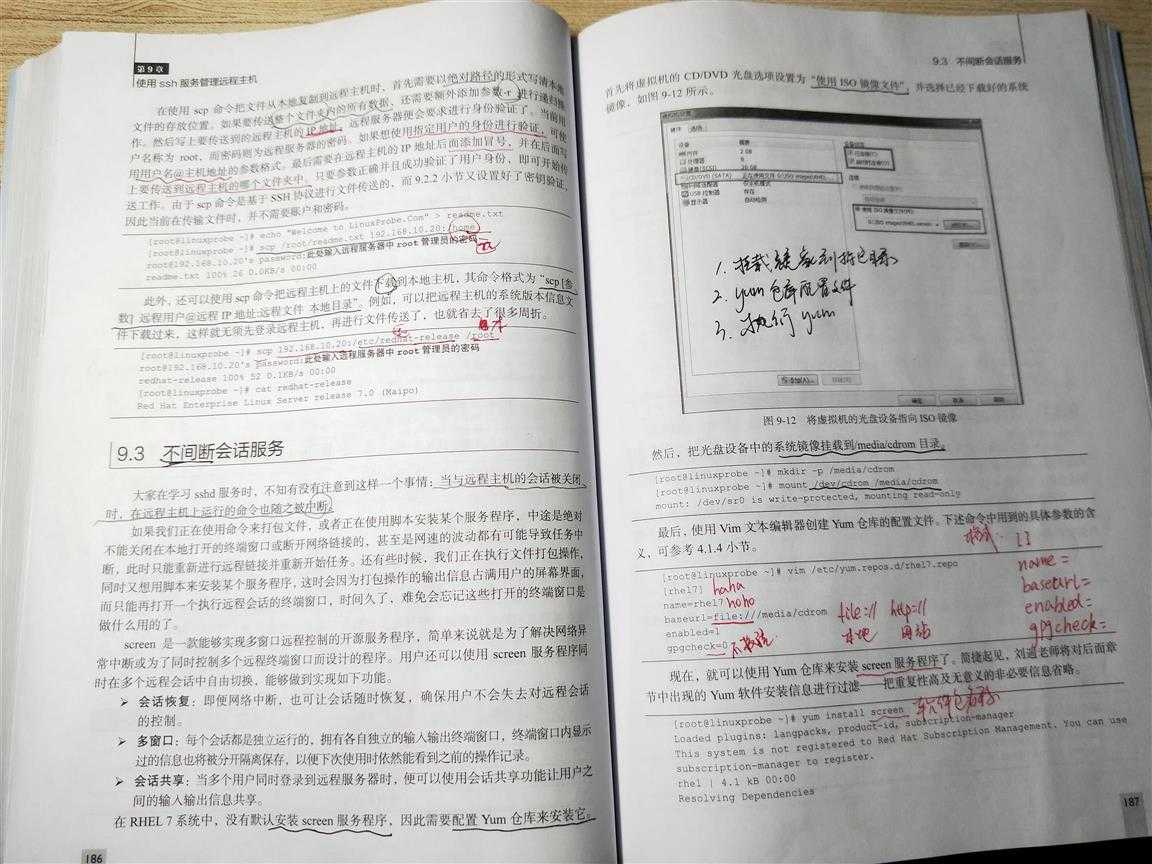 第9章
使用 ssh 服务管理远程主机
在使用 scp 命令把文件从本地复制到远程主机时，首先需要以绝对路径的形式写清本地
文件的存放位置。如果要传送整个文件夹内的所有数据，还需要额外添加参数-r 进行递归操
作。然后写上要传送到的远程主机的 IP 地址，远程服务器便会要求进行身份验证了。当前用
户名称为 root，而密码则为远程服务器的密码。如果想使用指定用户的身份进行验证，可使
用用户名@主机地址的参数格式。最后需要在远程主机的 IP 地址后面添加冒号，并在后面写
上要传送到远程主机的哪个文件夹中。只要参数正确并且成功验证了用户身份，即可开始传
送工作。由于 scp 命令是基于 SSH 协议进行文件传送的，而 9.2.2 小节又设置好了密钥验证，
因此当前在传输文件时，并不需要账户和密码。
[root@linuxprobe ~]# echo "Welcome to LinuxProbe.Com" > readme.txt
[root@linuxprobe ~]# scp /root/readme.txt 192.168.10.20:/home
root@192.168.10.20's password:此处输入远程服务器中 root 管理员的密码
readme.txt 100% 26 0.0KB/s 00:00
此外，还可以使用 scp 命令把远程主机上的文件下载到本地主机，其命令格式为“scp [参
数] 远程用户@远程 IP 地址:远程文件 本地目录”。例如，可以把远程主机的系统版本信息文
件下载过来，这样就无须先登录远程主机，再进行文件传送了，也就省去了很多周折。
[root@linuxprobe ~]# scp 192.168.10.20:/etc/redhat-release /root
root@192.168.10.20's password:此处输入远程服务器中 root 管理员的密码
redhat-release 100% 52 0.1KB/s 00:00
[root@linuxprobe ~]# cat redhat-release
Red Hat Enterprise Linux Server release 7.0 (Maipo)
9.3 不间断会话服务
大家在学习 sshd 服务时，不知有没有注意到这样一个事情：当与远程主机的会话被关闭
时，在远程主机上运行的命令也随之被中断。
如果我们正在使用命令来打包文件，或者正在使用脚本安装某个服务程序，中途是绝对
不能关闭在本地打开的终端窗口或断开网络链接的，甚至是网速的波动都有可能导致任务中
断，此时只能重新进行远程链接并重新开始任务。还有些时候，我们正在执行文件打包操作，
同时又想用脚本来安装某个服务程序，这时会因为打包操作的输出信息占满用户的屏幕界面，
而只能再打开一个执行远程会话的终端窗口，时间久了，难免会忘记这些打开的终端窗口是
做什么用的了。
screen 是一款能够实现多窗口远程控制的开源服务程序，简单来说就是为了解决网络异
常中断或为了同时控制多个远程终端窗口而设计的程序。用户还可以使用 screen 服务程序同
时在多个远程会话中自由切换，能够做到实现如下功能。
➢ 会话恢复：即便网络中断，也可让会话随时恢复，确保用户不会失去对远程会话
的控制。
➢ 多窗口：每个会话都是独立运行的，拥有各自独立的输入输出终端窗口，终端窗口内显示
过的信息也将被分开隔离保存，以便下次使用时依然能看到之前的操作记录。
➢ 会话共享：当多个用户同时登录到远程服务器时，便可以使用会话共享功能让用户之
间的输入输出信息共享。
在 RHEL 7 系统中，没有默认安装 screen 服务程序，因此需要配置 Yum 仓库来安装它。
186
9.3 不间断会话服务
首先将虚拟机的 CD/DVD 光盘选项设置为“使用 ISO 镜像文件”，并选择已经下载好的系统
镜像，如图 9-12 所示。
1. 挂载
2. yum仓库配置文件
3. 执行 yum
图 9-12 将虚拟机的光盘设备指向 ISO 镜像
然后，把光盘设备中的系统镜像挂载到/media/cdrom 目录。
[root@linuxprobe ~]# mkdir -p /media/cdrom
[root@linuxprobe ~]# mount /dev/cdrom /media/cdrom
mount: /dev/sr0 is write-protected, mounting read-only
最后，使用 Vim 文本编辑器创建 Yum 仓库的配置文件。下述命令中用到的具体参数的含
义，可参考 4.1.4 小节。
格式: []
[root@linuxprobe ~]# vim /etc/yum.repos.d/rhel7.repo
name=
[rhel7] haha
name=rhel7 hoho
baseurl=
baseurl=file:///media/cdrom file:// http://
enabled=
enabled=1 本地 网站
gpgcheck=
gpgcheck=0
现在，就可以使用 Yum 仓库来安装 screen 服务程序了。简捷起见，刘遄老师将对后面章
节中出现的 Yum 软件安装信息进行过滤——把重复性高及无意义的非必要信息省略。
[root@linuxprobe ~]# yum install screen 软件包名称
Loaded plugins: langpacks, product-id, subscription-manager
This system is not registered to Red Hat Subscription Management. You can use
subscription-manager to register.
rhel | 4.1 kB 00:00
Resolving Dependencies
187